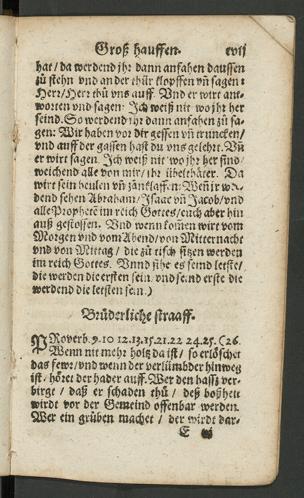 Groß hauffen. cvij
hat / da werdend jhr dann anfahen daussen
zů stehn vnd an der thür klopffen vñ sagen:
Herr / Herr thů vns auff. Vnd er wirt ant-
worten vnd sagen: Ich weiß nit wo jhr her
seind. So werdend jhr dann anfahen zů sa-
gen: Wir haben vor dir gessen vñ truncken /
vnd auff der gassen hast du vns gelehrt. Vñ
er wirt sagen. Ich weiß nit wo jhr her sind /
weichend alle von mir / jhr übelthäter. Da
wirt sein heulen vñ zänklaffen: Weñ jr we-
dend sehen Abraham / Isaac vñ Jacob / vnd
alle Prophetē im reich Gottes / euch aber hin
auß gestossen. Vnd wenn kom̃en wirt vom
Morgen vnd vom Abend / von Mitternacht
vnd von Mittag / die zů tisch sitzen werden
im reich Gottes. Vnnd sihe es seind letste /
die werden die ersten sein, vnd seind erste die
werdend die letsten sein.)
Brüderliche straaff.
PRoverb. 9. 10 12. 13. 15. 21. 22 24. 25. (26.
Wenn nit mehr holtz da ist / so erlöschet
das fewr / vnd wenn der verlümbder hinweg
ist / höret der hader auff. Wer den hass ver-
birgt / daß er schaden thů / deß boßheit
wirdt vor der Gemeind offenbar werden.
Wer ein grůben machet / der wirdt dar-
E